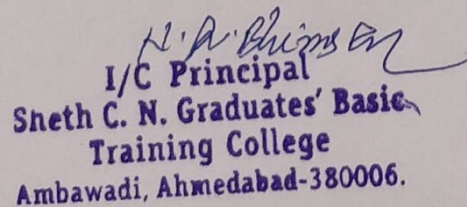 I/C Principal
Sheth C. N. Graduates' Basic
Training College
Ambawadi, Ahmedabad-380006.